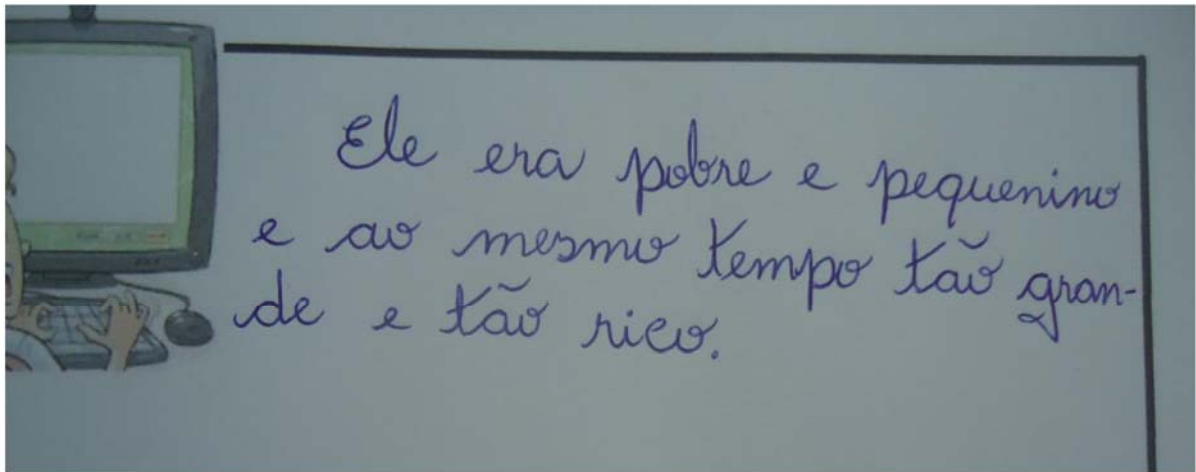 Ele era pobre e pequenino
e ao mesmo tempo tão gran-
de e tão rico.